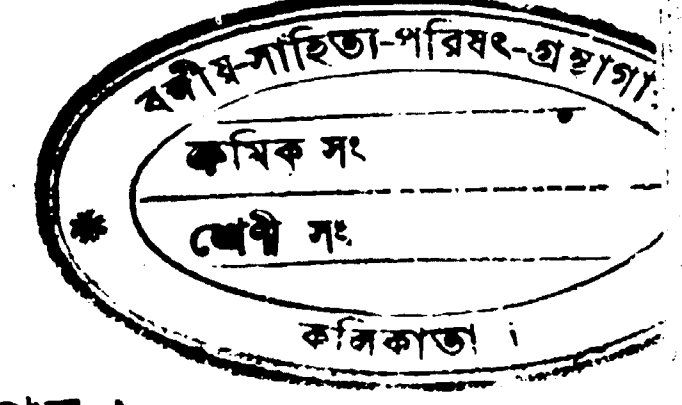 বঙ্গীয়-সাহিত্য-পরিষৎ-গ্রন্থাগা
ক্রমিক সং
শ্রেণী সং
কলিকাতা ।